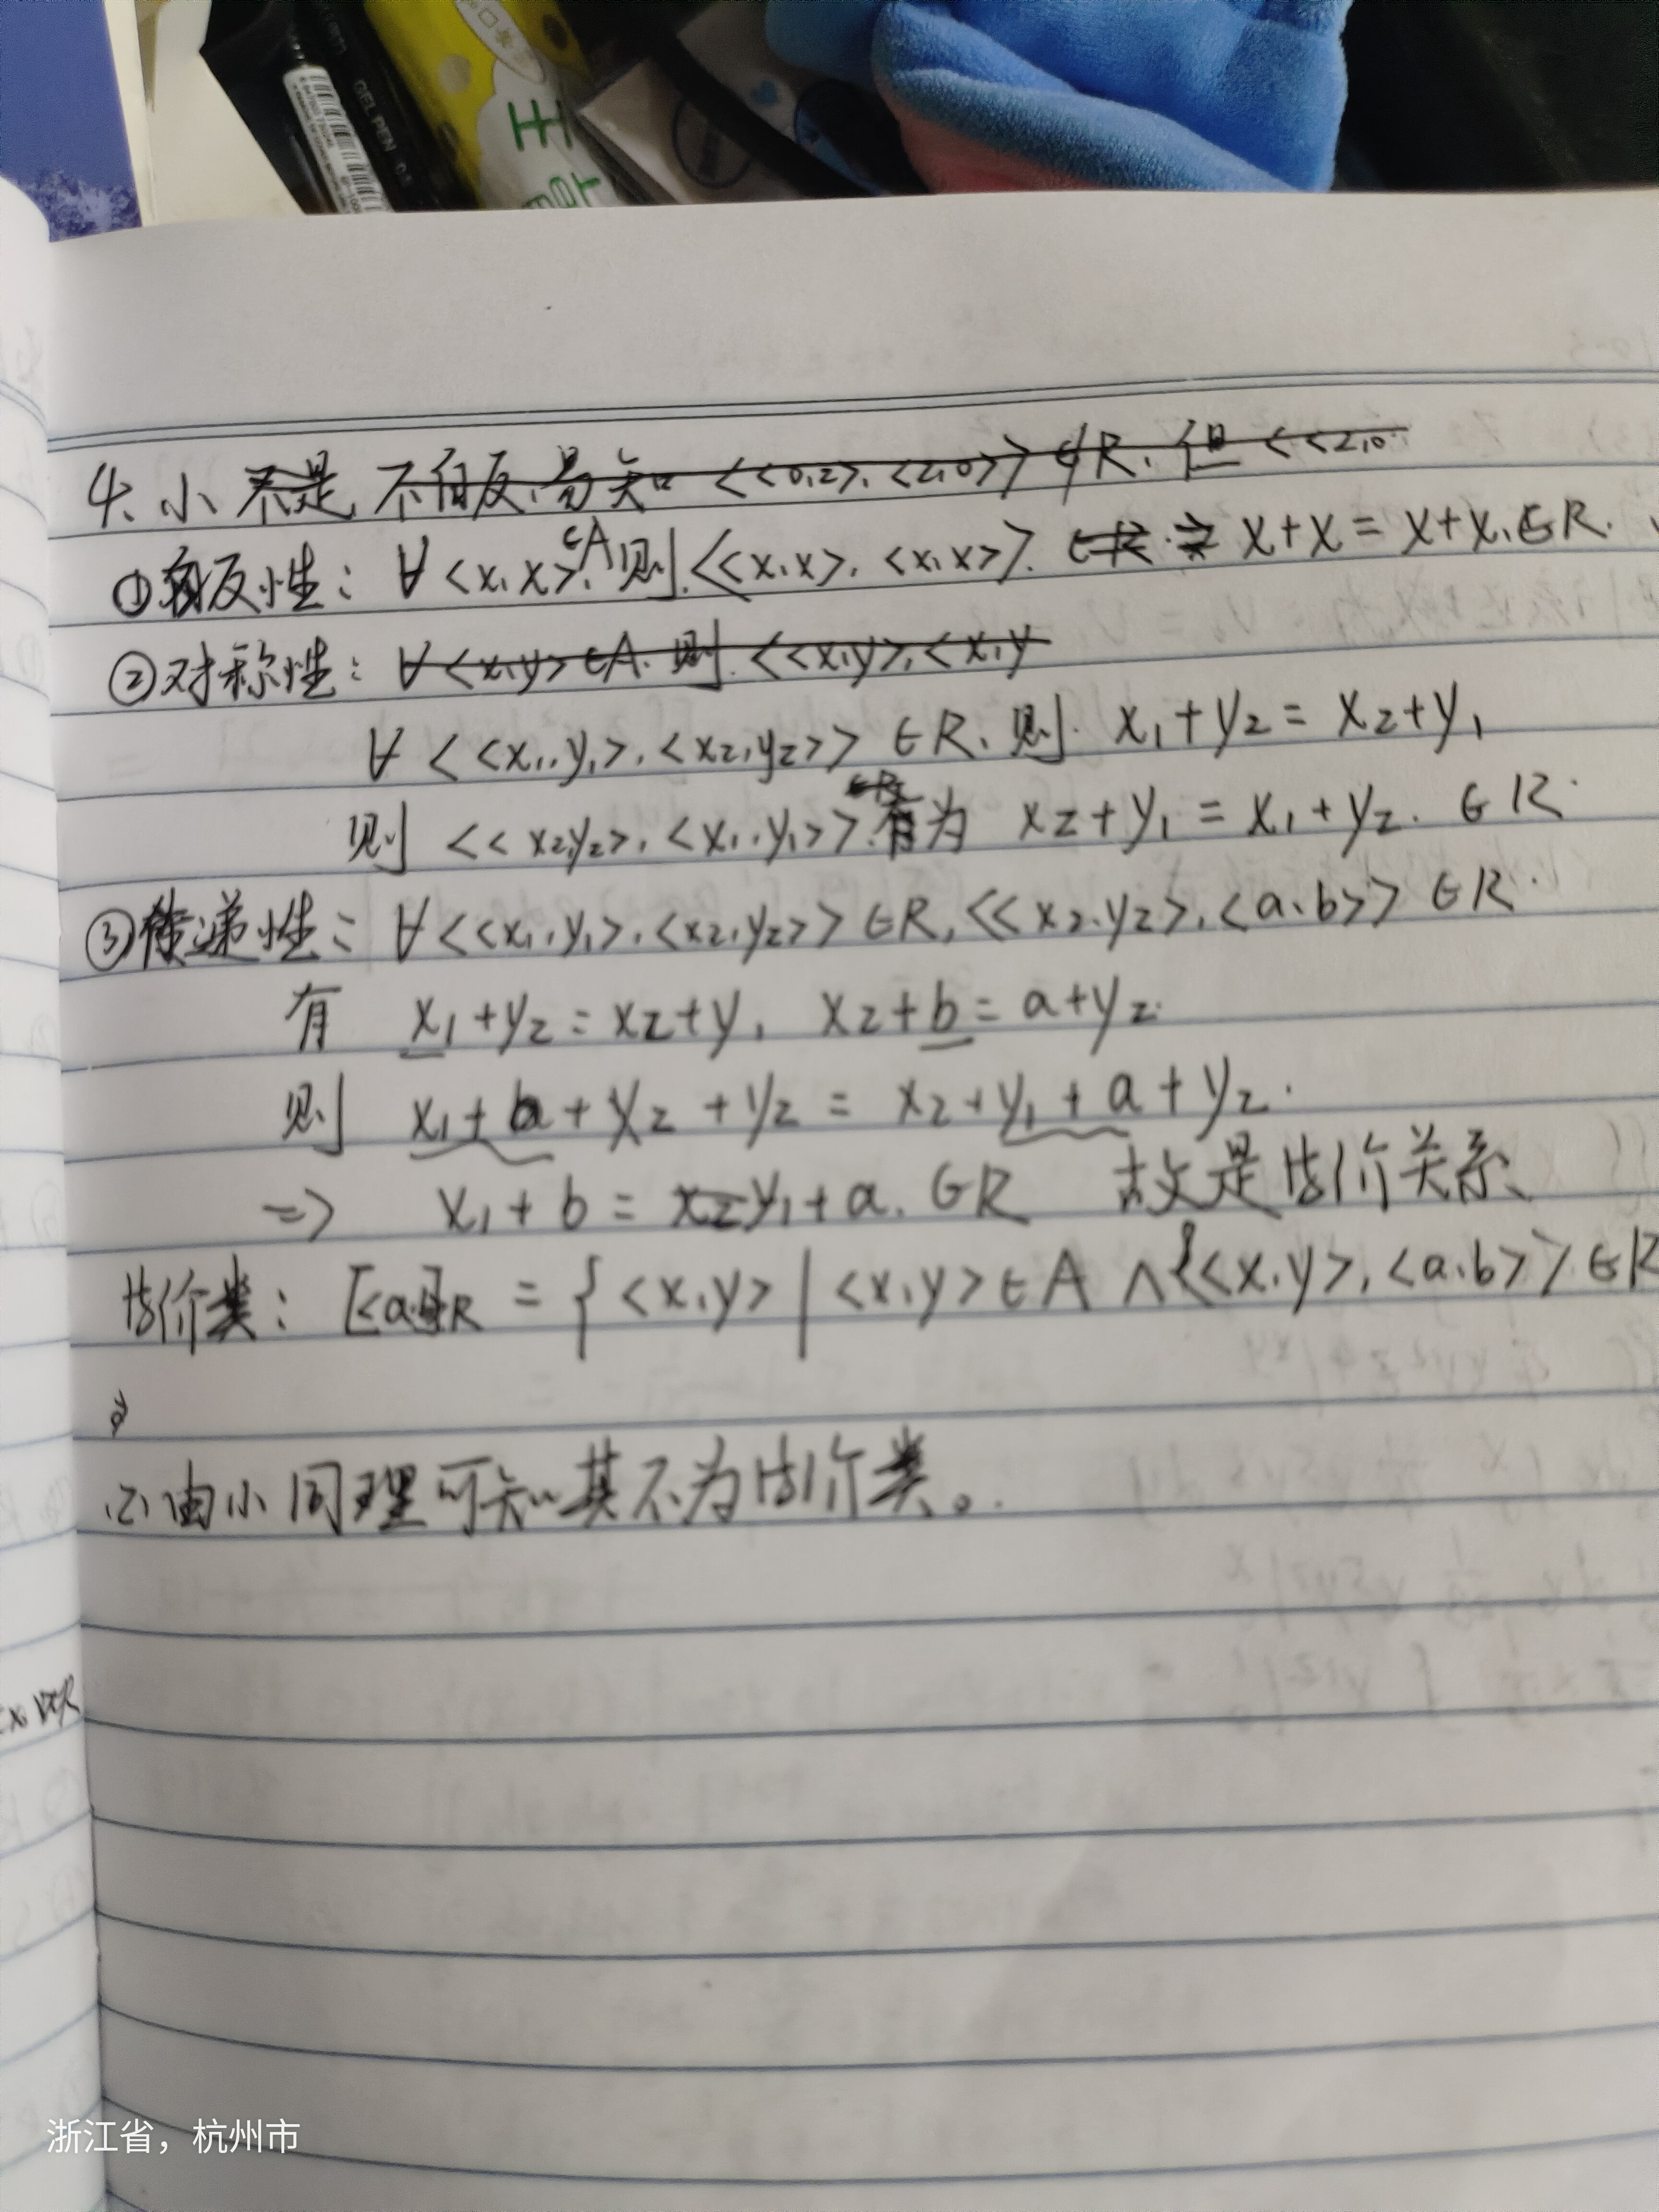 GEL PEN 0.5
4、(1) 不是,不自反,易知 <<0,2>,<2,0>>∉R,但<<2,0
①自反性:∀<x,x>∈A,则<<x,x>,<x,x>>. x+x=x+x,∈R.
②对称性:∀<x,y>∈A.则.<<x,y>,<x,y
∀<<x₁,y₁>,<x₂,y₂>>∈R,则 x₁+y₂=x₂+y₁
则 <<x₂,y₂>,<x₁,y₁>>有为 x₂+y₁=x₁+y₂. ∈R.
③传递性:∀<<x₁,y₁>,<x₂,y₂>>∈R,<<x₂,y₂>,<a,b>>∈R.
有 x₁+y₂=x₂+y₁ x₂+b=a+y₂.
则 x₁+b+x₂+y₂=x₂+y₁+a+y₂.
=> x₁+b=y₁+a. ∈R 故是等价关系、
等价类:[<a,b>]R={<x,y>|<x,y>∈A∧<<x,y>,<a,b>>∈R
(2)由(1)同理可知其不为等价类。
浙江省,杭州市